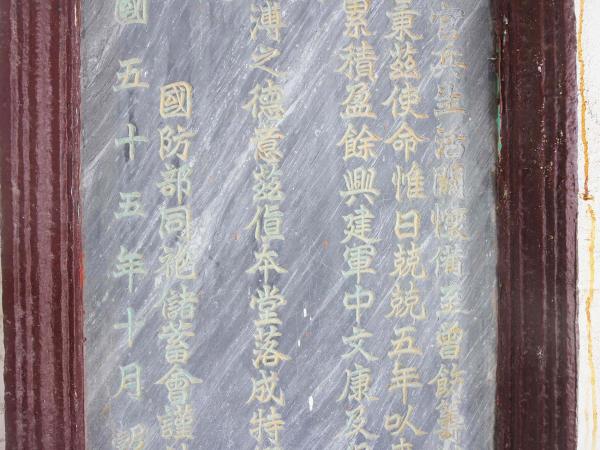 官兵生活關懷備至曾飭籌
秉茲使命惟日兢兢五年以來
累積盈餘興建軍中文康及
溥之德意茲值本堂落成特
國防部同袍儲蓄會謹
國五十五年十月